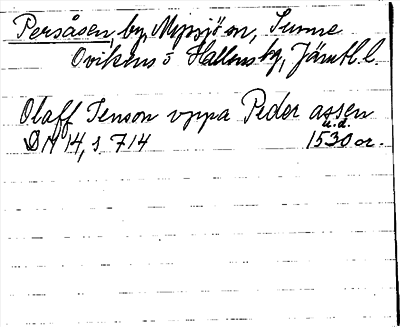 Persåsen, by, Myssjö sn, Sunne
Ovikens o Hallens tg, Jämtl. l.
Olaff Jenson vppa Peder assen
u.d.
DN 14, s 714 1530 or.